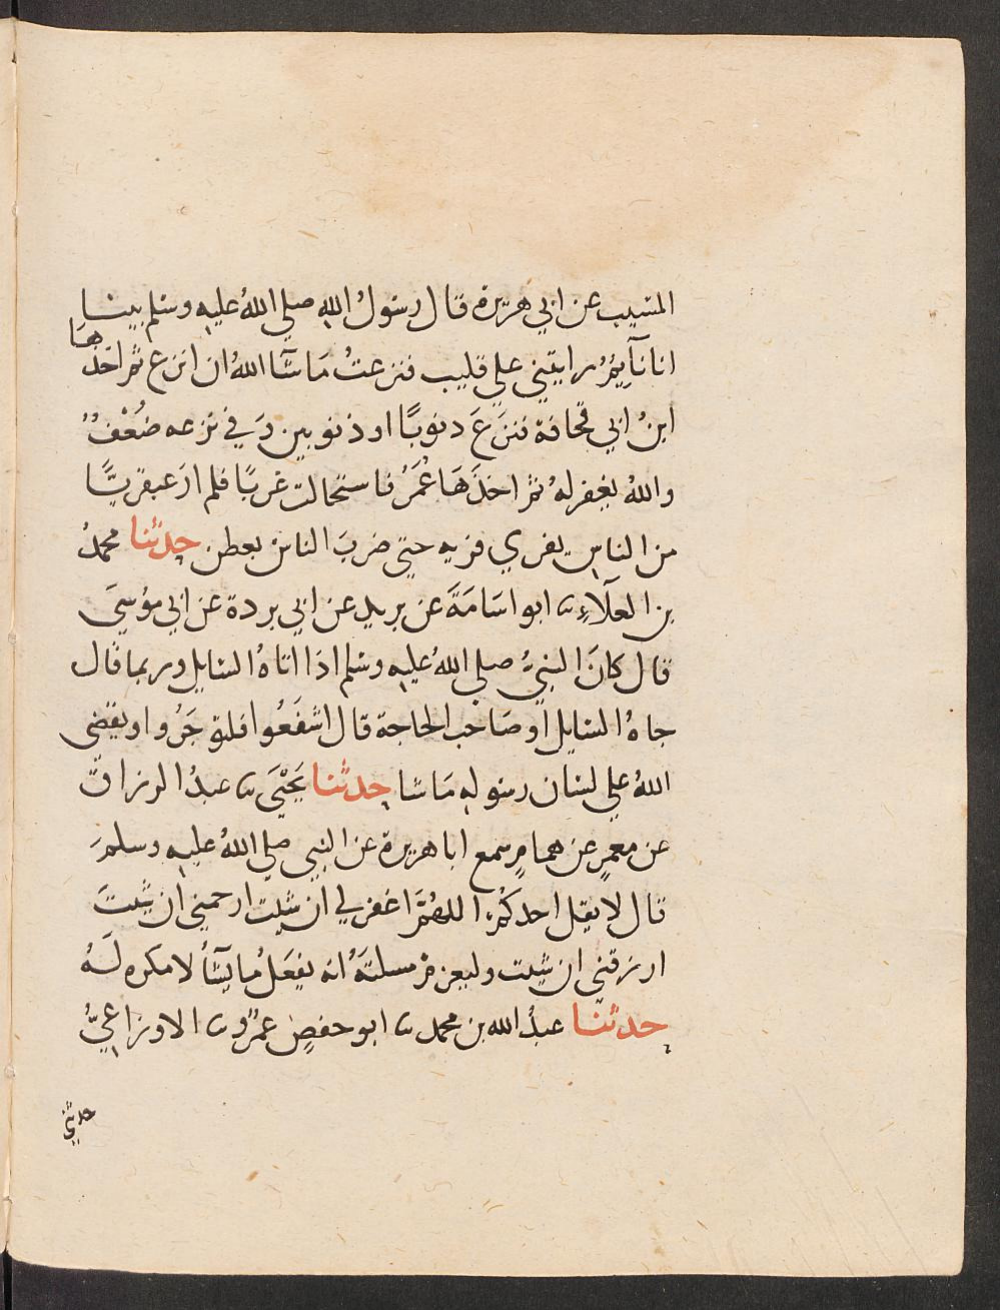 المسيب عن ابي هريرة قال رسولُ الله صلي اللهُ عليه وسلم بينا
انا نآيِمٌ رايتني علي قليب فنزعتُ مَا شآ اللهُ ان انزع ثم اخذها
ابنُ ابي قحافة فنزَعَ ذنوبًا او ذنوبين وَفي نزعه ضُعْفٌ
واللهُ يغفر لهُ ثم اخذَهَا عُمَرُ فاستحالت غربًا فلم ارَ عبقريًّا
من الناسِ يفري فريه حتي ضربَ الناسُ بعطن حدثنا محمدُ
بن العلآءِ ثنا ابو اسَامَةَ عن بريد عن ابي بردة عن ابي موسيَ
قال كانَ النبيُّ صلي اللهُ عليه وسلم اذا اتاهُ السايل وربما قال
جاهُ السايل او صَاحب الحاجة قال اشفَعُوا فلتوجَرُوا ويقضي
اللهُ علي لسان رسوله مَا شا حدثنا يَحْيَى ثنا عبدُ الرزاق
عن معمرٍ عن همامٍ سمع ابا هريرة عن النبي صلي اللهُ عليه وسلمَ
قال لا يقل احدكُمُ اللهُمَّ اغفر لي ان شيت ارحمني ان شيتَ
ارزقني ان شيت وليعزم مسلتَهُ انه يفعَلُ ما يشآُ لا مكره لَهُ
حدثنا عبدُ الله بن محمد ثنا ابو حفصٍ عمرٌو ثنا الاوزاعيُّ
حدثني